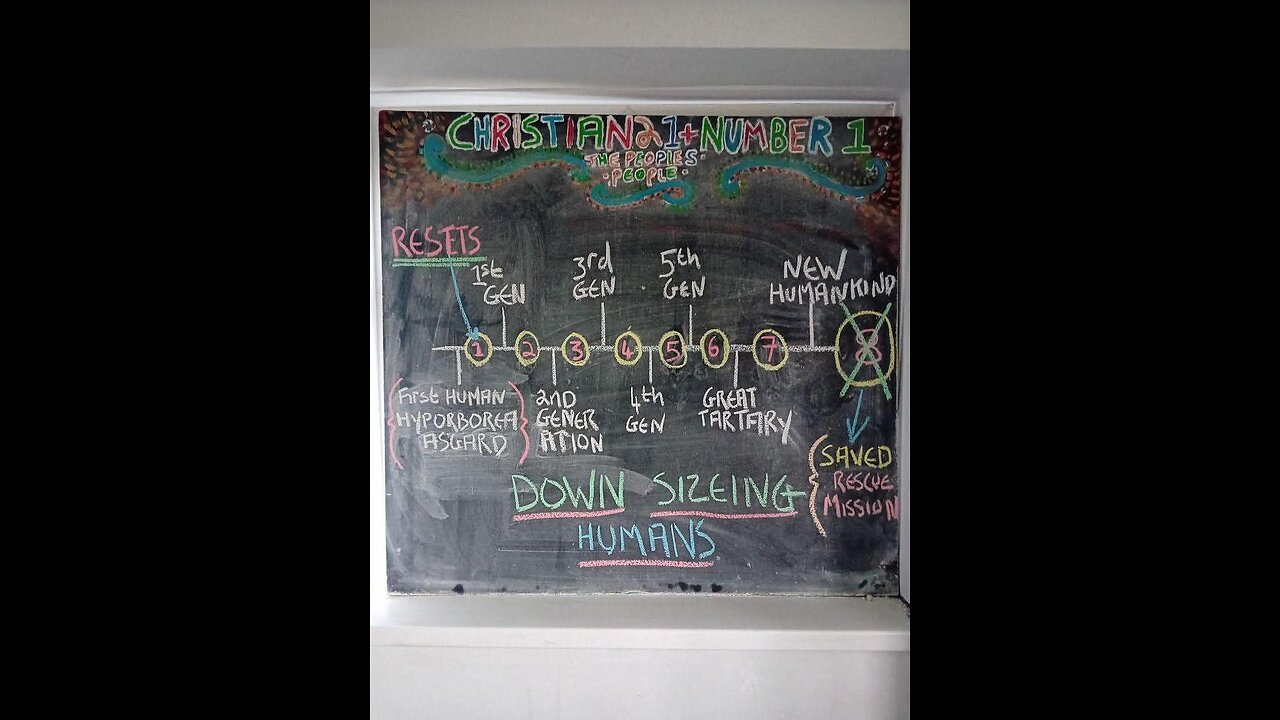 CHRISTIAN21+NUMBER 1
THE PEOPLES
PEOPLE
RESETS
1st
GEN
3rd
GEN
5th
GEN
NEW
HUMANKIND
1 2 3 4 5 6 7 8
FIrST HUMAN
HYPORBOREA
ASGARD
2ND
GENER
ATION
4th
GEN
GREAT
TARTARY
SAVED
RESCUE
MISSION
DOWN SIZEING
HUMANS